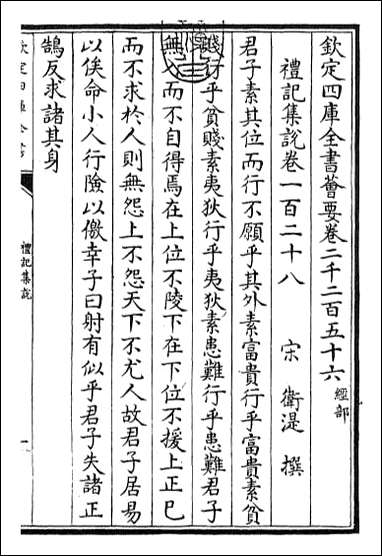 欽定四庫全書薈要卷二千二百五十六 經部
禮記集說卷一百二十八 宋 衛湜 撰
君子素其位而行不願乎其外素富貴行乎富貴素貧
賤行乎貧賤素夷狄行乎夷狄素患難行乎患難君子
無入而不自得焉在上位不陵下在下位不援上正己
而不求於人則無怨上不怨天下不尤人故君子居易
以俟命小人行險以儌幸子曰射有似乎君子失諸正
鵠反求諸其身
禮記集說
一